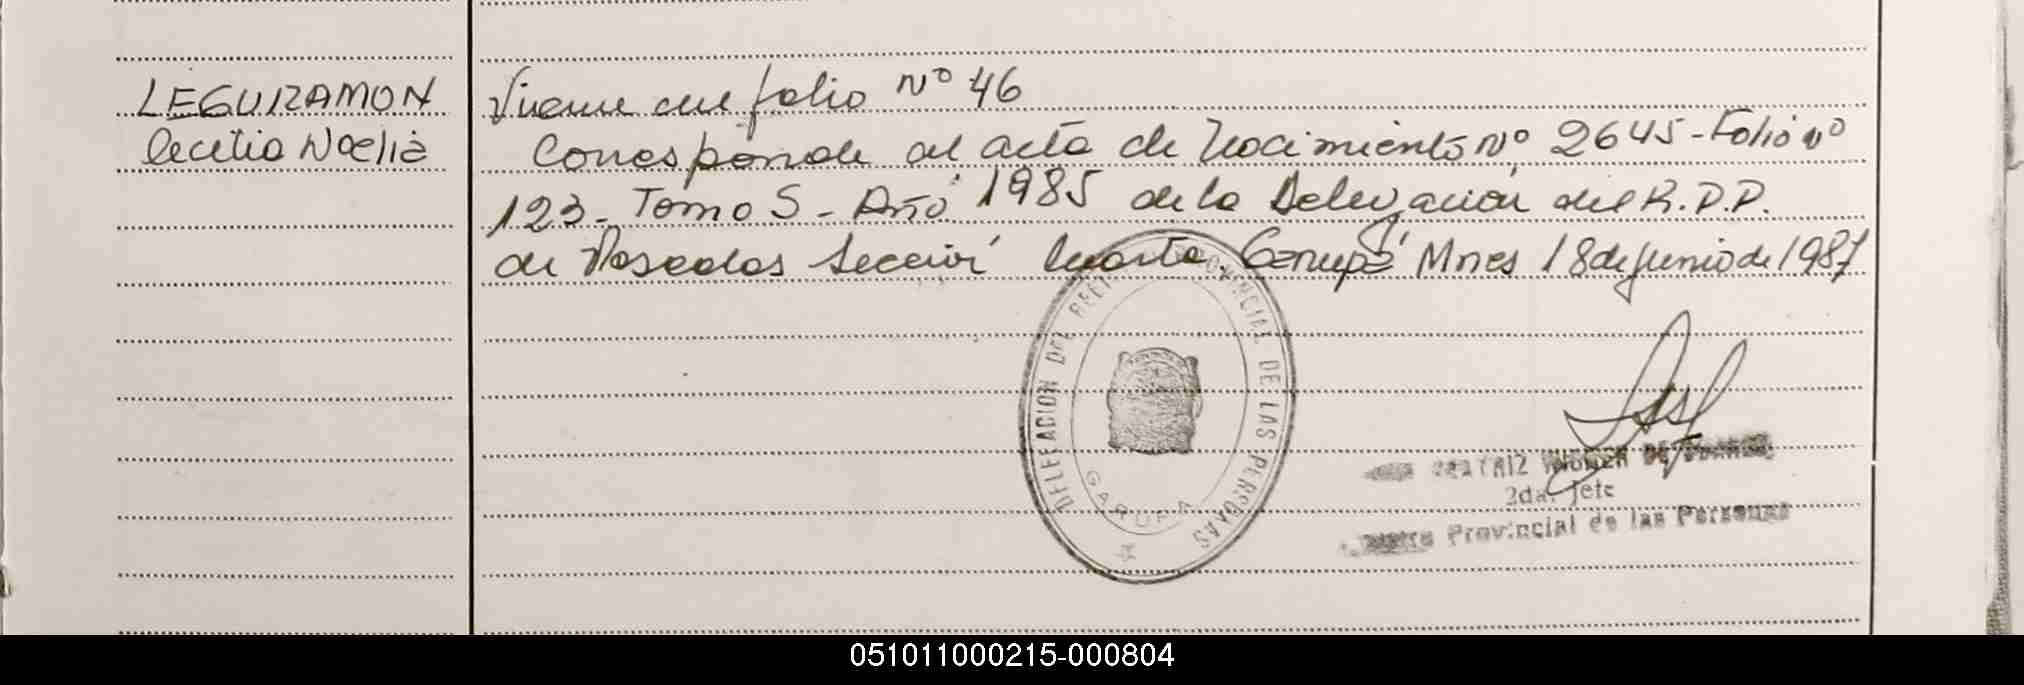 LEGUIZAMON
Cecilia Noelia
Viene del folio Nº 46
Corresponde al acta de Nacimiento Nº 2645 - Folio nº
123 - Tomo 5 - Año 1985 de la Delegación del R.P.P.
de Posadas Sección Cuarta. Garupá Mnes 18 de junio de 1987
DELEGACION DEL REGISTRO PROVINCIAL DE LAS PERSONAS
GARUPA
BEATRIZ DE
2da. Jefe
Provincial de las Personas
051011000215-000804